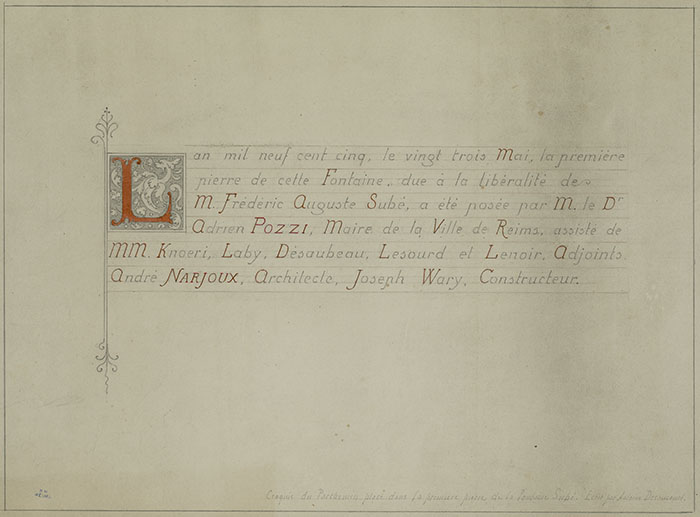 Lan mil neuf cent cinq, le vingt trois Mai, la première
pierre de cette Fontaine, due à la libéralité de
M. Frédéric Auguste Subé, a été posée par M. le Dr
Adrien POZZI, Maire de la Ville de Reims, assisté de
MM. Knoeri, Laby, Désaubeau, Lesourd et Lenoir, Adjoints.
André NARJOUX, Architecte, Joseph Wary, Constructeur.
Croquis du Parchemin placé dans la première pierre de la Fontaine Subé.